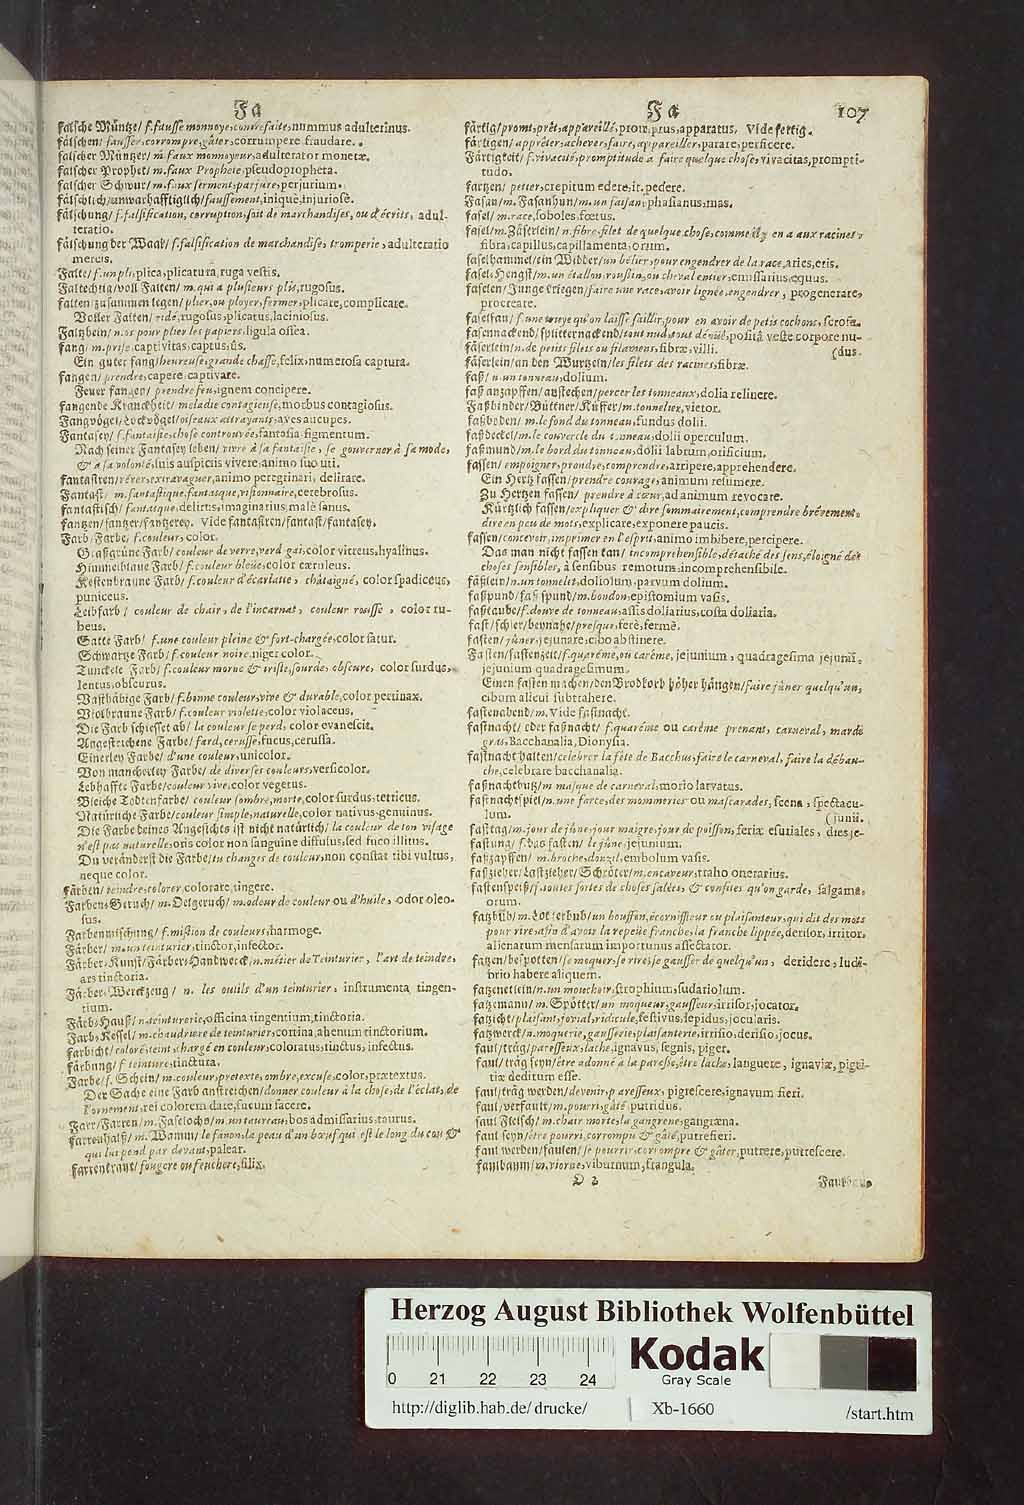 Fa
falsche Müntze/ f. fausse monnoye, contrefaite, nummus adulterinus.
fälschen/ fausser, corrompre, gâter, corrumpere, fraudare.
falscher Müntzer/ m. faux monnoyeur, adulterator monetæ.
falscher Prophet/ m. faux Prophete, pseudopropheta.
falscher Schwur/ m. faux serment, parjure, perjurium.
fälschlich/unwarhafftiglich/ faussement, iniquè, injuriosè.
fälschung/ f. falsification, corruption, soit de marchandises, ou d'écrits, adul-
teratio.
fälschung der Waar/ f. falsification de marchandise, tromperie, adulteratio
mercis.
Falte/ f. un pli, plica, plicatura, ruga vestis.
Faltechtig/voll Falten/ m. qui a plusieurs plis, rugosus.
falten/zusammen legen/ plier, ou ployer, fermer, plicare, complicare.
Voller Falten/ ridé, rugosus, plicatus, laciniosus.
Faltzbein/ n. os pour plier les papiers, ligula ossea.
fang/ m. prise, captivitas, captus, ûs.
Ein guter fang/heureuse, grande chasse, felix, numerosa captura.
fangen/ prendre, capere, captivare.
Feuer fangen/ prendre feu, ignem concipere.
fangende Kranckheit/ maladie contagieuse, morbus contagiosus.
Fangvögel/Lockvögel/oiseaux attrayants, aves aucupes.
Fantasey/ f. fantaisie, chose controuvée, fantasia, figmentum.
Nach seiner Fantasey leben/ vivre à sa fantaisie, se gouverner à sa mode,
& a sa volonté, suis auspiciis vivere, animo suo uti.
fantastiren/rêver, extravaguer, animo peregrinari, delirare.
Fantast/ m. fantastique, fantasque, visionnaire, cerebrosus.
fantastisch/ fantasque, delirus, imaginarius, malè sanus.
fantzen/fantzer/fantzerey. Vide fantastiren/fantast/fantasey.
Farb/Farbe/ f. couleur, color.
Grasgrüne Farb/ couleur de verre, verd gai, color vitreus, hyalinus.
Himmelblaue Farb/ f. couleur bleüe, color cæruleus.
Kestenbraune Farb/ f. couleur d'écarlatte, châtaigné, color spadiceus,
puniceus.
Leibfarb/ couleur de chair, de l'incarnat, couleur rousse, color ru-
beus.
Satte Farb/ f. une couleur pleine & fort-chargée, color satur.
Schwartze Farb/ f. couleur noire, niger color.
Tunckele Farb/ f. couleur morne & triste, sourde, obscure, color surdus,
lentus, obscurus.
Vasthäbige Farb/ f. bonne couleur, vive & durable, color pertinax.
Violbraune Farb/ f. couleur violette, color violaceus.
Die Farb schiesset ab/ la couleur se perd, color evanescit.
Angestrichene Farbe/ fard, ceruse, fucus, cerussa.
Einerley Farbe/ d'une couleur, unicolor.
Von mancherley Farbe/ de diverses couleurs, versicolor.
Lebhaffte Farbe/couleur vive, color vegetus.
Bleiche Todtenfarbe/ couleur sombre, morte, color surdus, tetricus.
Natürliche Farbe/ couleur simple, naturelle, color nativus, genuinus.
Die Farbe deines Angesichts ist nicht natürlich/ la couleur de ton visage
n'est pas naturelle, oris color non sanguine diffusus, sed fuco illitus.
Du veränderst die Farbe/tu changes de couleur, non constat tibi vultus,
neque color.
färben/ teindre, colorer, colorare, tingere.
Farben-Geruch/ m. Oelgeruch/ m. odeur de couleur ou d'huile, odor oleo-
sus.
Farbenmischung/ f. mistion de couleurs, harmoge.
Färber/ m. un teinturier, tinctor, infector.
Färber-Kunst/Färber-Handwerck/n. métier de Teinturier, l'art de teindre,
ars tinctoria.
Färber-Werckzeug/ n. les outils d'un teinturier, instrumenta tingen-
tium.
Färb-Hauß/ n. teinturerie, officina tingentium, tinctoria.
Farb-Kessel/ m. chaudriere de teinturier, cortina, ahenum tinctorium.
farbicht/ coloré, teint, chargé en couleur, coloratus, tinctus, infectus.
färbung/ f. teinture, tinctura.
Farbe/f. Schein/ m. couleur, pretexte, ombre, excuse, color, prætextus.
Der Sache eine Farb anstreichen/donner couleur à la chose, de l'éclat, de
l'ornement, rei colorem dare, fucum facere.
Farr/Farren/ m. Faselochs/ m. un taureau, bos admissarius, taurus.
farrenhalß/ m. Wamm/ le fanon, la peau d'un bœuf qui est le long du cou &
qui lui pend par devant, palear.
farrenkraut/ fougere ou feuchere, filix.
Fa 107
färtig/promt, prêt, appareillé, promptus, apparatus. Vide fertig.
färtigen/ apprêter, achever, faire, appareiller, parare, perficere.
Färtigkeit/ f. vivacité, promptitude a faire quelque chose, vivacitas, prompti-
tudo.
fartzen/ petter, crepitum edere, it. pedere.
Fasan/m. Fasanhun/m. un faisan, phasianus, mas.
fasel/ m. race, soboles, fœtus.
fasel/m. Zäserlein/ n. fibre, filet de quelque chose, comme il y en a aux racines,
fibra, capillus, capillamenta, orum.
faselhammel/ein Widder/ un bélier, pour engendrer de la race, aries, etis.
fasel-Hengst/m. un étallon, roussin, ou cheval entier, emissarius, equus.
faselen/Junge kriegen/faire une race, avoir lignée, engendrer, progenerare,
procreare.
faselsau/ f. une truye qu'on laisse saillir, pour en avoir de petis cochons, scrofa.
fasennackend/splitternackend/tout nud, tout dénüé, positâ veste corpore nu-
fäserlein/n. de petits filets ou filamens, fibræ, villi. (dus.
fäserlein/an den Wurtzeln/les filets des racines, fibræ.
faß/ n. un tonneau, dolium.
faß anzapffen/anstechen/percer les tonneaux, dolia relinere.
Faßbinder/Büttner/Küffer/ m. tonnelier, vietor.
faßboden/ m. le fond du tonneau, fundus dolii.
faßdeckel/m. le couvercle du tonneau, dolii operculum.
faßmund/ m. le bord du tonneau, dolii labrum, orificium.
fassen/ empoigner, prendre, comprendre, arripere, apprehendere.
Ein Hertz fassen/prendre courage, animum resumere.
Zu Hertzen fassen/ prendre a cœur, ad animum revocare.
Kürtzlich fassen/expliquer & dire sommairement, comprendre brévement,
dire en peu de mots, explicare, exponere paucis.
fassen/concevoir, imprimer en l'esprit, animo imbibere, percipere.
Das man nicht fassen kan/ incomprehensible, détaché des sens, éloigné des
choses sensibles, à sensibus remotum, incomprehensibile.
fäßlein/n. un tonnelet, doliolum, parvum dolium.
faßpund/faß spund/m. bondon, epistomium vasis.
faßtaube/f. douve de tonneau, assis doliarius, costa doliaria.
fast/schier/beynahe/presque, ferè, fermè.
fasten/ jûner, jejunare, cibo abstinere.
Fasten/fastenzeit/f. quaréme, ou caréme, jejunium, quadragesima jejunii,
jejunium quadragesimum.
Einen fasten machen/den Brodkorb höher hängen/faire jûner quelqu'un,
cibum alicui subtrahere.
fastenabend/m. Vide faßnacht.
fastnacht/ oder faßnacht/ f. quaréme ou caréme prenant, carneval, mardi
gras, Bacchanalia, Dionysia.
fastnacht halten/celebrer la fête de Bacchus, faire le carneval, faire la débau-
che, celebrare bacchanalia.
faßnachtbutz/ m masque de carneval, morio larvatus.
fastnachtspiel/m. une farce, des mommeries ou mascarades, scena, spectacu-
lum. (junii.
fasttag/m. jour de jûne, jour maigre, jour de poisson, feriæ esuriales, dies je-
fastung/ f. das fasten/ le jûne, jejunium.
faßzapffen/ m. broche, douzil, embolum vasis.
faßzieher/Lastzieher/Schröter/m. encaveur, traho onerarius.
fastenspeiß/f. toutes sortes de choses salées, & confites qu'on garde, salgama,
orum.
fatzbub/m. Lotterbub/un bouffon, écornifleur ou plaisanteur, qui dit des mots
pour rire, afin d'avoir la repeüe franche, la franche lippée, derisor, irritor,
alienarum mensarum importunus assectator.
fatzen/bespotten/se moquer, se rire, se gausser de quelqu'un, deridere, ludi-
brio habere aliquem.
fatzenetlein/n. un mouchoir, strophium, sudariolum.
fatzmann/ m. Spötter/ un moqueur, gausseur, irrisor, jocator.
fatzicht/plaisant, jovial, ridicule, festivus, lepidus, jocularis.
fatzwerck/ n. moquerie, gausserie, plaisanterie, irrisio, derisio, jocus.
faul/träg/paresseux, lache, ignavus, segnis, piger.
faul/träg seyn/être adonné a la paresse, être lache, languere, ignaviæ, pigri-
tiæ deditum esse.
faul/träg werden/devenir paresseux, pigrescere, ignavum fieri.
faul/verfault/ m. pourri, gâté, putridus.
faul Fleisch/ m. chair morte, la gangrene, gangræna.
faul seyn/ être pourri, corrompu & gâté, putrefieri.
faul werden/faulen/ se pourrir, corrompre & gâter, putrere, putrescere.
faulbaum/m. viorne, viburnum, frangula.
Herzog August Bibliothek Wolfenbüttel
0 21 22 23 24
Kodak
Gray Scale
http://diglib.hab.de/drucke/ Xb-1660 /start.htm